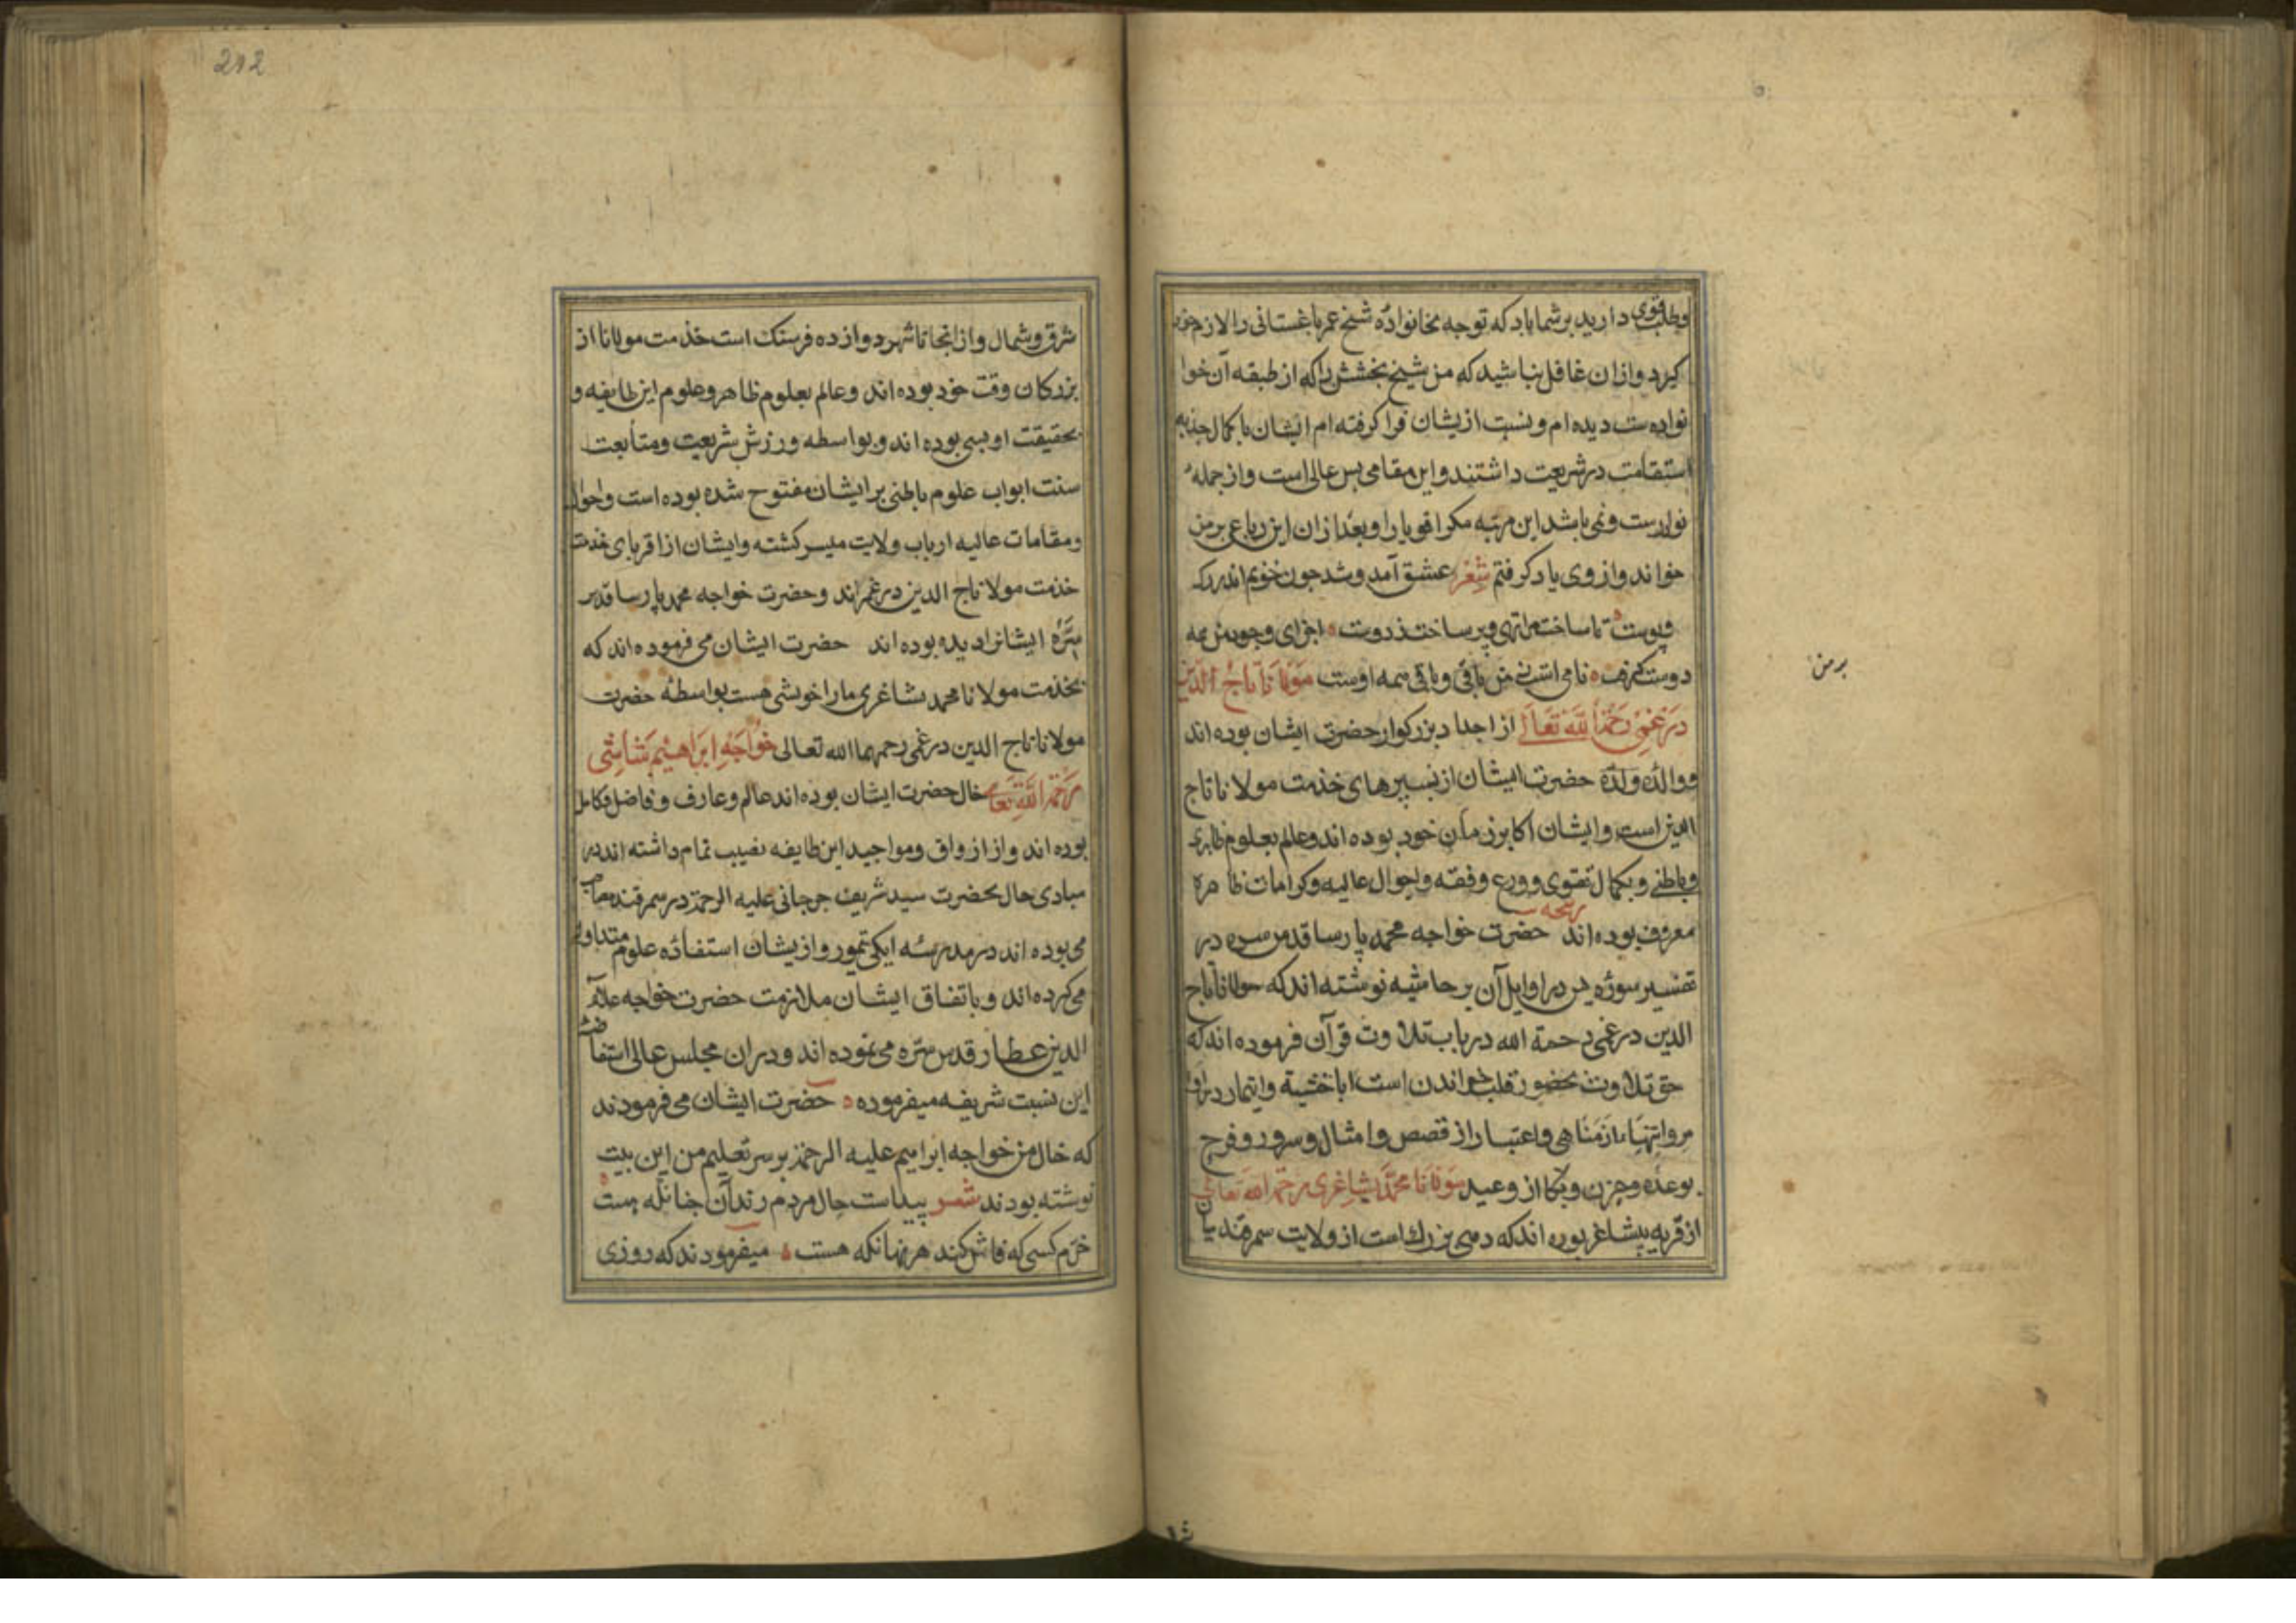 وطلب قوی دارید بر شما باد که توجه بخانواده شیخ عمر باغستانی را لازم
کیرد وازان غافل نباشید که من شیخ بخشش را که از طبقه آن خوا
نواده ست دیده ام و نسبت ازیشان فرا کرفته ام ایشان با کمال جذبه
استقامت در شریعت داشتند و این مقامی بس عالی است و از جمله
نوادرست و نمی باشد این مرتبه مکر اقویا را و بعد ازان این رباعی بر من
خواند و از وی یاد کرفتم شعر عشق آمد و شد جون خونم اندر رک
و پوست تا ساخت مرا تهی و پر ساخت ز دوست اجزای وجود من همه
دوست کرفت نامی است بر من باقی و باقی همه اوست مولانا تاج الدین
درغمی رحمة الله تعالی از اجداد بزرکوار حضرت ایشان بوده اند
و والده والده حضرت ایشان از نبسیرهای خدمت مولانا تاج
الدین است و ایشان اکابر زمان خود بوده اند و عالم بعلوم ظاهری
و باطنی و بکمال تقوی و ورع و فقه و احوال عالیه و کرامات ظاهره
رشحه
معروف بوده اند حضرت خواجه محمد پارسا قدس سره در
تفسیر سوره یس در اوایل آن بر حاشیه نوشته اند که مولانا تاج
الدین درغمی رحمة الله در باب تلاوت قرآن فرموده اند که
حق تلاوت بحضور قلب خواندن است با خشیة و ایتمار در اوا
مر وانتها از مناهی و اعتبار از قصص و امثال و سرور و فرح
بوعده و حزن و بکا از وعید مولانا محمد بشاغری رحمة الله تعالی
از قریه پشاغر بوده اند که دهی بزرك است از ولایت سمرقند میان
بر من
212
شرق و شمال و از انجا تا شهر دوازده فرسنک است خدمت مولانا از
بزرکان وقت خود بوده اند و عالم بعلوم ظاهر و علوم این طایفه و
بحقیقت اویسی بوده اند و بواسطه ورزش شریعت و متابعت
سنت ابواب علوم باطنی بر ایشان مفتوح شده بوده است واحوال
و مقامات عالیه ارباب ولایت میسر کشته وایشان از اقربای خدمت
خدمت مولانا تاج الدین درغم اند و حضرت خواجه محمد پارسا قدس
سره ایشانرا دیده بوده اند حضرت ایشان می فرموده اند که
بخدمت مولانا محمد بشاغری مارا خویشی هست بواسطه حضرت
مولانا تاج الدین درغمی رحمهما الله تعالی خواجه ابراهیم شاشی
رحمة الله تعالی خال حضرت ایشان بوده اند عالم و عارف و فاضل و کامل
بوده اند و از ازواق و مواجید این طایفه نصیب تمام داشته اند در
مبادی حال بحضرت سید شریف جرجانی علیه الرحمة در سمرقند مصاحب
می بوده اند در مدرسه ایکی تیمور و ازیشان استفاده علوم متداوله
می کرده اند و باتفاق ایشان ملازمت حضرت خواجه علاء
الدین عطار قدس سره می نموده اند و دران مجلس عالی استفاضه
این نسبت شریفه میفرموده حضرت ایشان می فرمودند
که خال من خواجه ابراهیم علیه الرحمة بر سر تعلیم من این بیت
نوشته بودند شعر پیداست حال مردم رند آن جنانکه هست
خرم کسی که فاش کند هر نهانکه هست میفرمودند که روزی